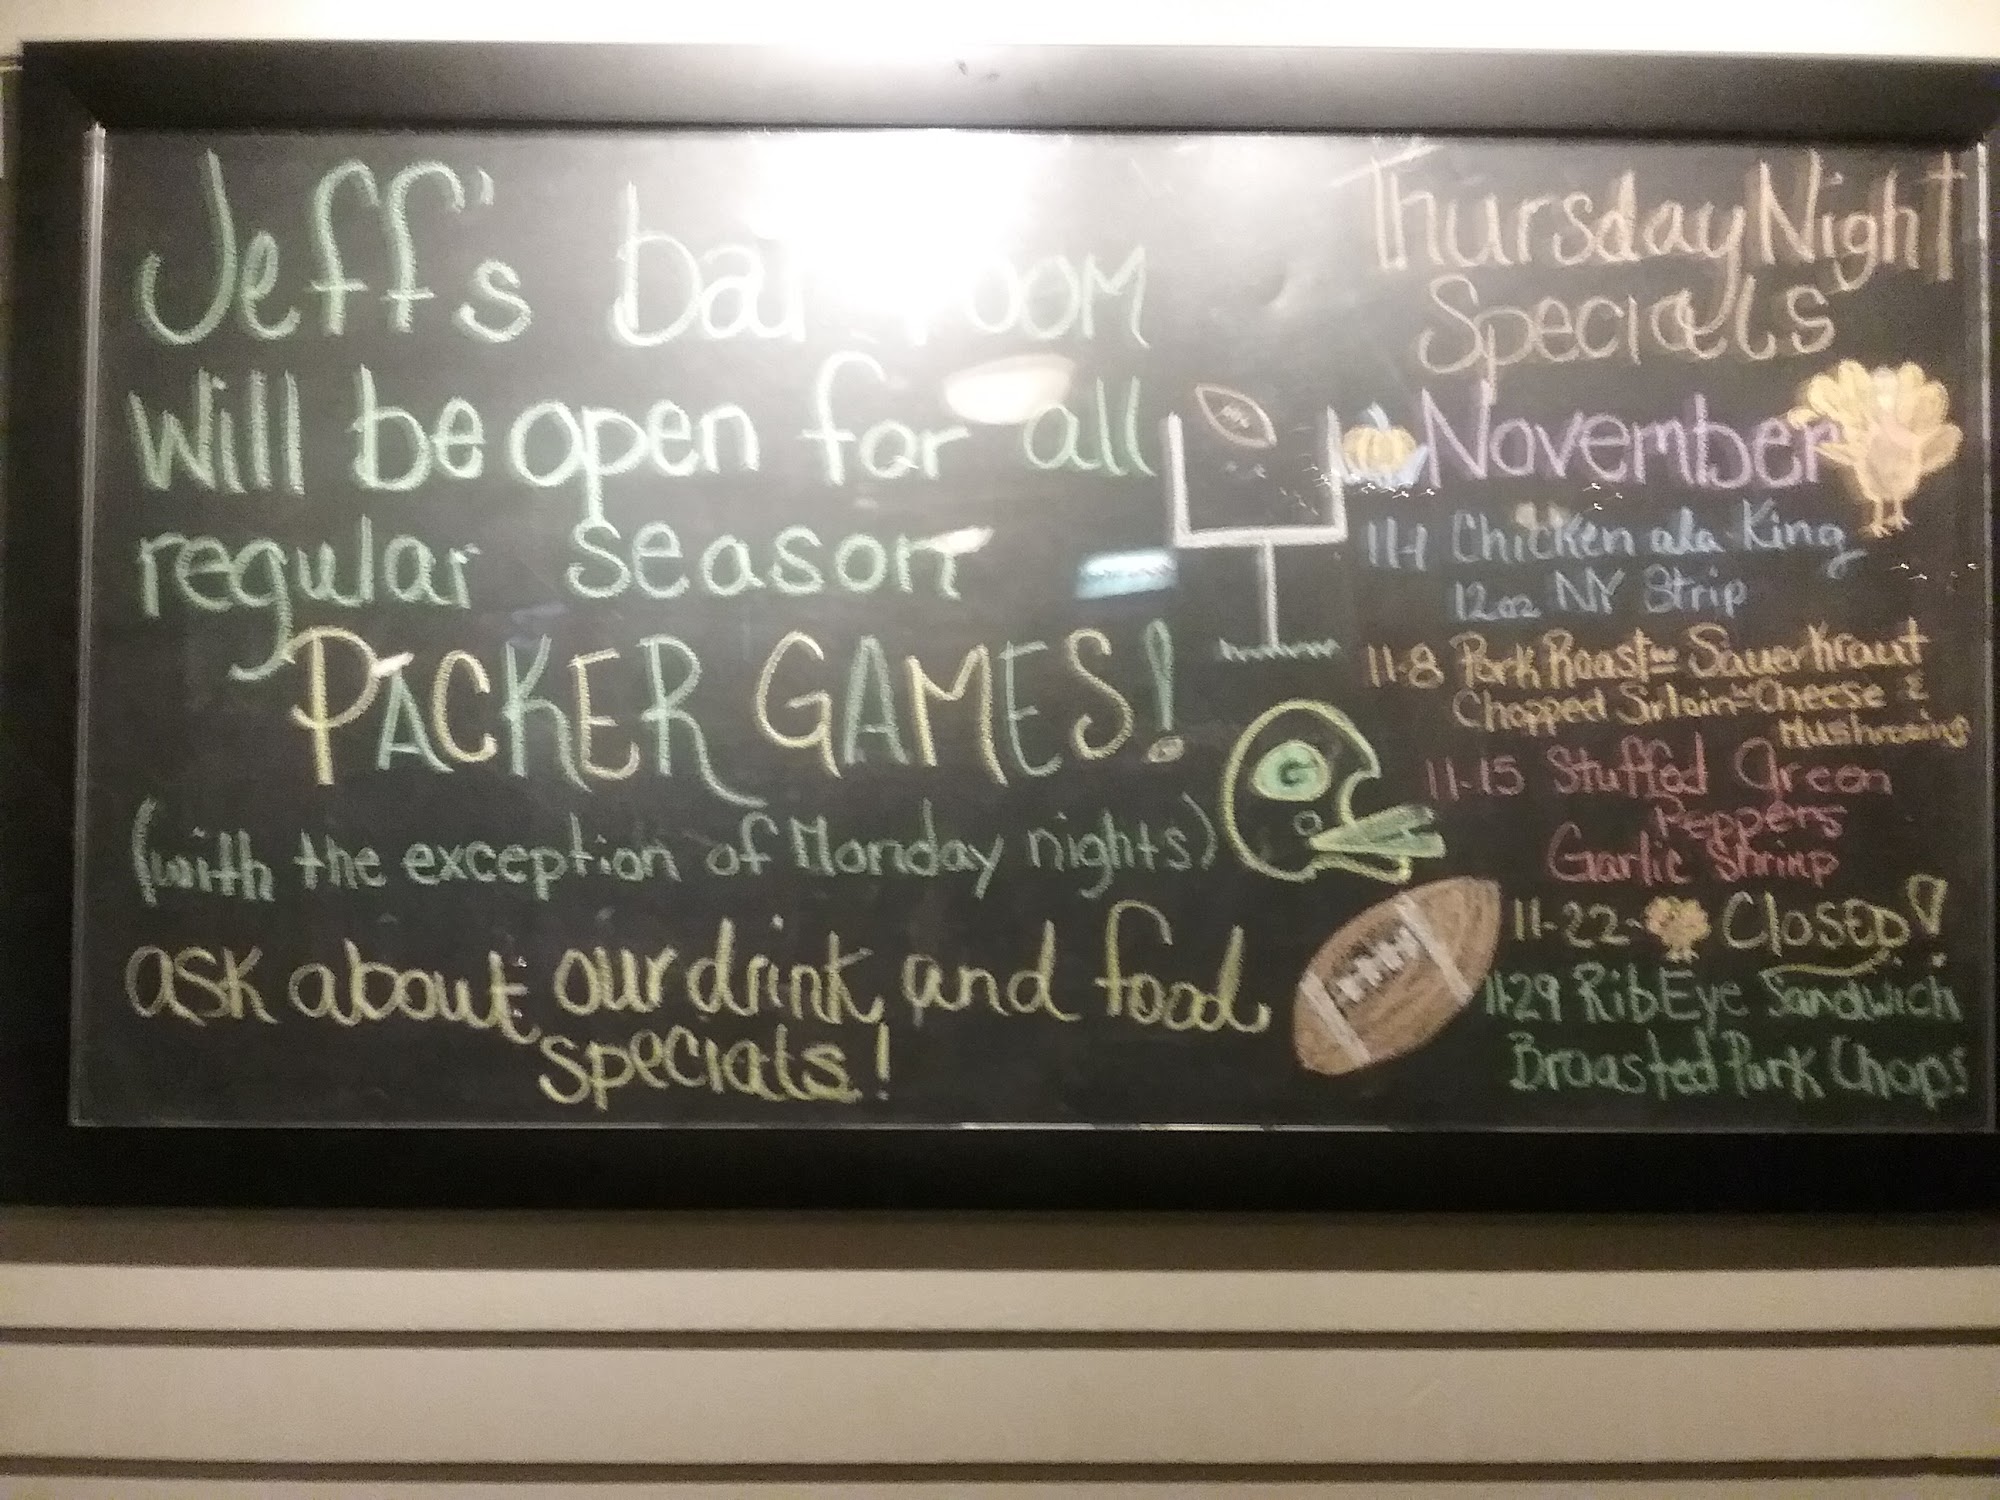 Jeff's bar room
will be open for all
regular season
PACKER GAMES!
(with the exception of Monday nights)
ask about our drink and food
specials!
G
Thursday Night
Specials
November
11-1 Chicken ala King
12oz NY Strip
11-8 Pork Roast ~ Sauerkraut
Chopped Sirloin ~ Cheese &
Mushrooms
11-15 Stuffed Green
Peppers
Garlic Shrimp
11-22- Closed!
11-29 RibEye Sandwich
Broasted Pork Chops